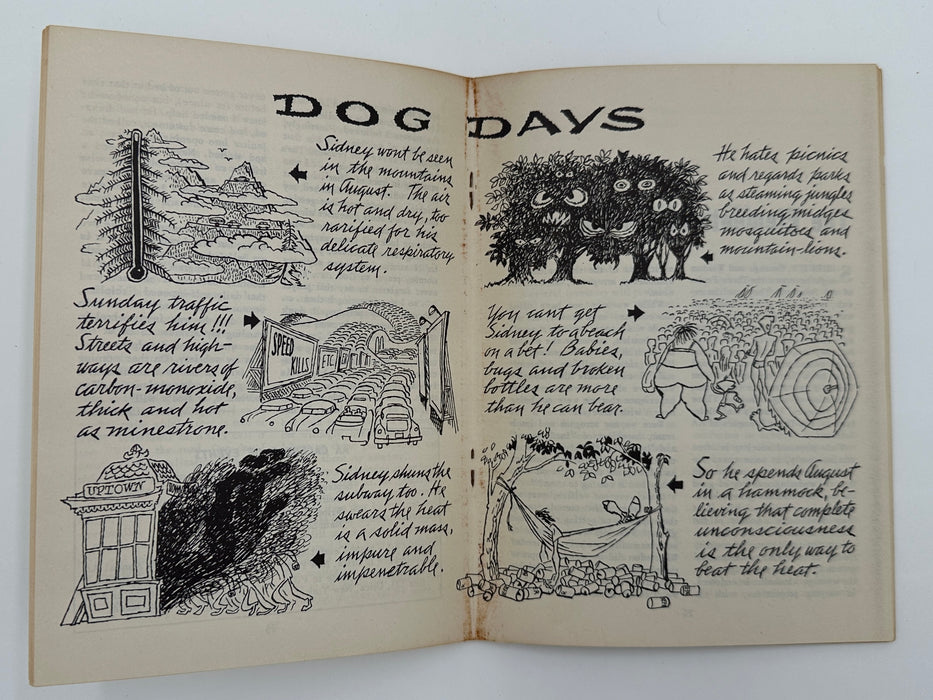 DOG DAYS
Sidney wont be seen
in the mountains
in August. The air
is hot and dry, too
rarified for his
delicate respiratory
system.
Sunday traffic
terrifies him!!!
Streets and high-
ways are rivers of
carbon-monoxide,
thick and hot
as minestrone.
SPEED
KILLS
ETC.
UPTOWN
Sidney shuns the
subway too. He
swears the heat
is a solid mass,
impure and
impenetrable.
He hates picnics
and regards parks
as steaming jungles
breeding midges
mosquitoes and
mountain-lions.
You cant get
Sidney to a beach
on a bet! Babies,
bugs and broken
bottles are more
than he can bear.
So he spends August
in a hammock, be-
lieving that complete
unconsciousness
is the only way to
beat the heat.